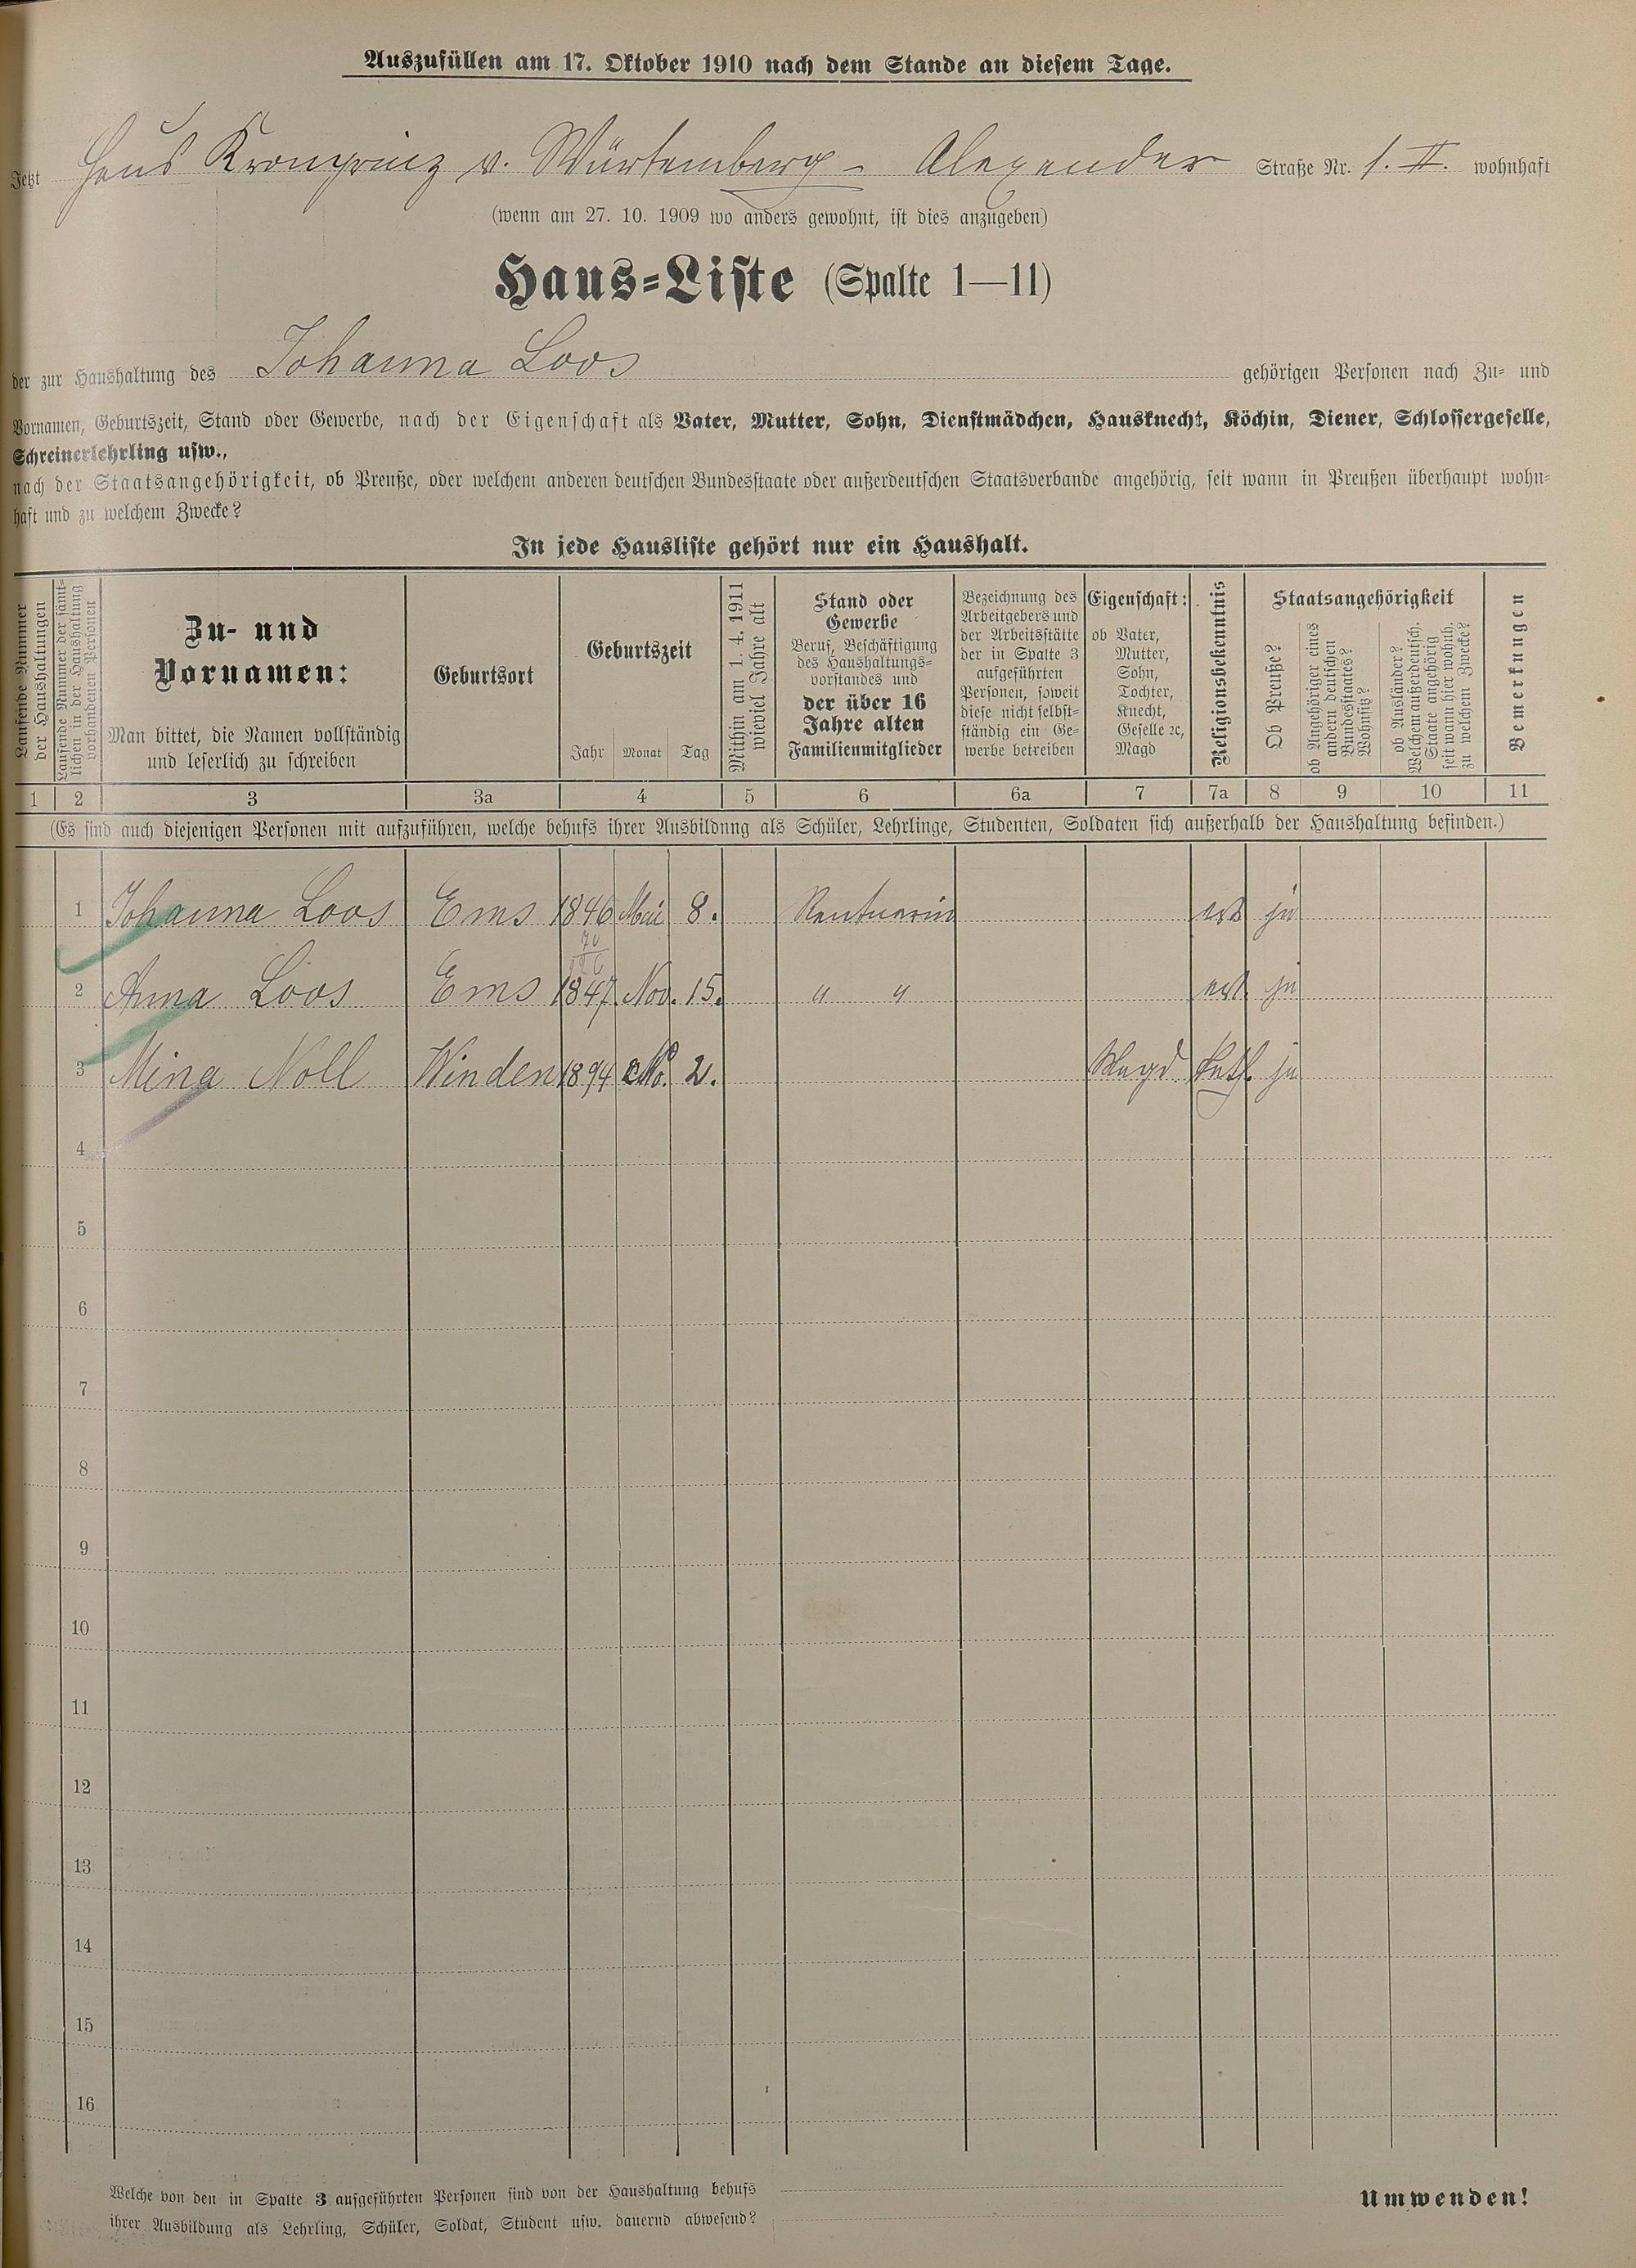 Auszufüllen am 17. Oktober 1910 nach dem Stande an diesem Tage.
Jetzt Haus Kronprinz v. Würtemberg - Alexander Straße Nr. 1. II. wohnhaft
(wenn am 27. 10. 1909 wo anders gewohnt, ist dies anzugeben)
Haus-Liste (Spalte 1—11)
der zur Haushaltung des Johanna Loos gehörigen Personen nach Zu- und
Vornamen, Geburtszeit, Stand oder Gewerbe, nach der Eigenschaft als Vater, Mutter, Sohn, Dienstmädchen, Hausknecht, Köchin, Diener, Schlossergeselle,
Schreinerlehrling usw.,
nach der Staatsangehörigkeit, ob Preuße, oder welchem anderen deutschen Bundesstaate oder außerdeutschen Staatsverbande angehörig, seit wann in Preußen überhaupt wohn-
haft und zu welchem Zwecke?
In jede Hausliste gehört nur ein Haushalt.
Laufende Nummer
der Haushaltungen
Laufende Nummer der sämt-
lichen in der Haushaltung
vorhandenen Personen
Zu- und
Vornamen:
Man bittet, die Namen vollständig
und leserlich zu schreiben
Geburtsort
Geburtszeit
Jahr Monat Tag
Mithin am 1. 4. 1911
wieviel Jahre alt
Stand oder
Gewerbe
Beruf, Beschäftigung
des Haushaltungs-
vorstandes und
der über 16
Jahre alten
Familienmitglieder
Bezeichnung des
Arbeitgebers und
der Arbeitsstätte
der in Spalte 3
aufgeführten
Personen, soweit
diese nicht selbst-
ständig ein Ge-
werbe betreiben
Eigenschaft:
ob Vater,
Mutter,
Sohn,
Tochter,
Knecht,
Geselle ꝛc,
Magd
Religionsbekenntnis
Staatsangehörigkeit
Ob Preuße?
ob Angehöriger eines
andern deutschen
Bundesstaates?
Wohnsitz?
ob Ausländer?
Welchem außerdeutsch.
Staate angehörig
seit wann hier wohnh.
zu welchem Zwecke?
Bemerkungen
1 2 3 3a 4 5 6 6a 7 7a 8 9 10 11
(Es sind auch diejenigen Personen mit aufzuführen, welche behufs ihrer Ausbildung als Schüler, Lehrlinge, Studenten, Soldaten sich außerhalb der Haushaltung befinden.)
1 Johanna Loos Ems 1846 Mai 8. Rentnerin ja
2 Anna Loos Ems 1847 Nov. 15. " " ja
3 Mina Noll Winden 1894 2. Magd kath. ja
4
5
6
7
8
9
10
11
12
13
14
15
16
Welche von den in Spalte 3 aufgeführten Personen sind von der Haushaltung behufs
ihrer Ausbildung als Lehrling, Schüler, Soldat, Student usw. dauernd abwesend?
Umwenden!